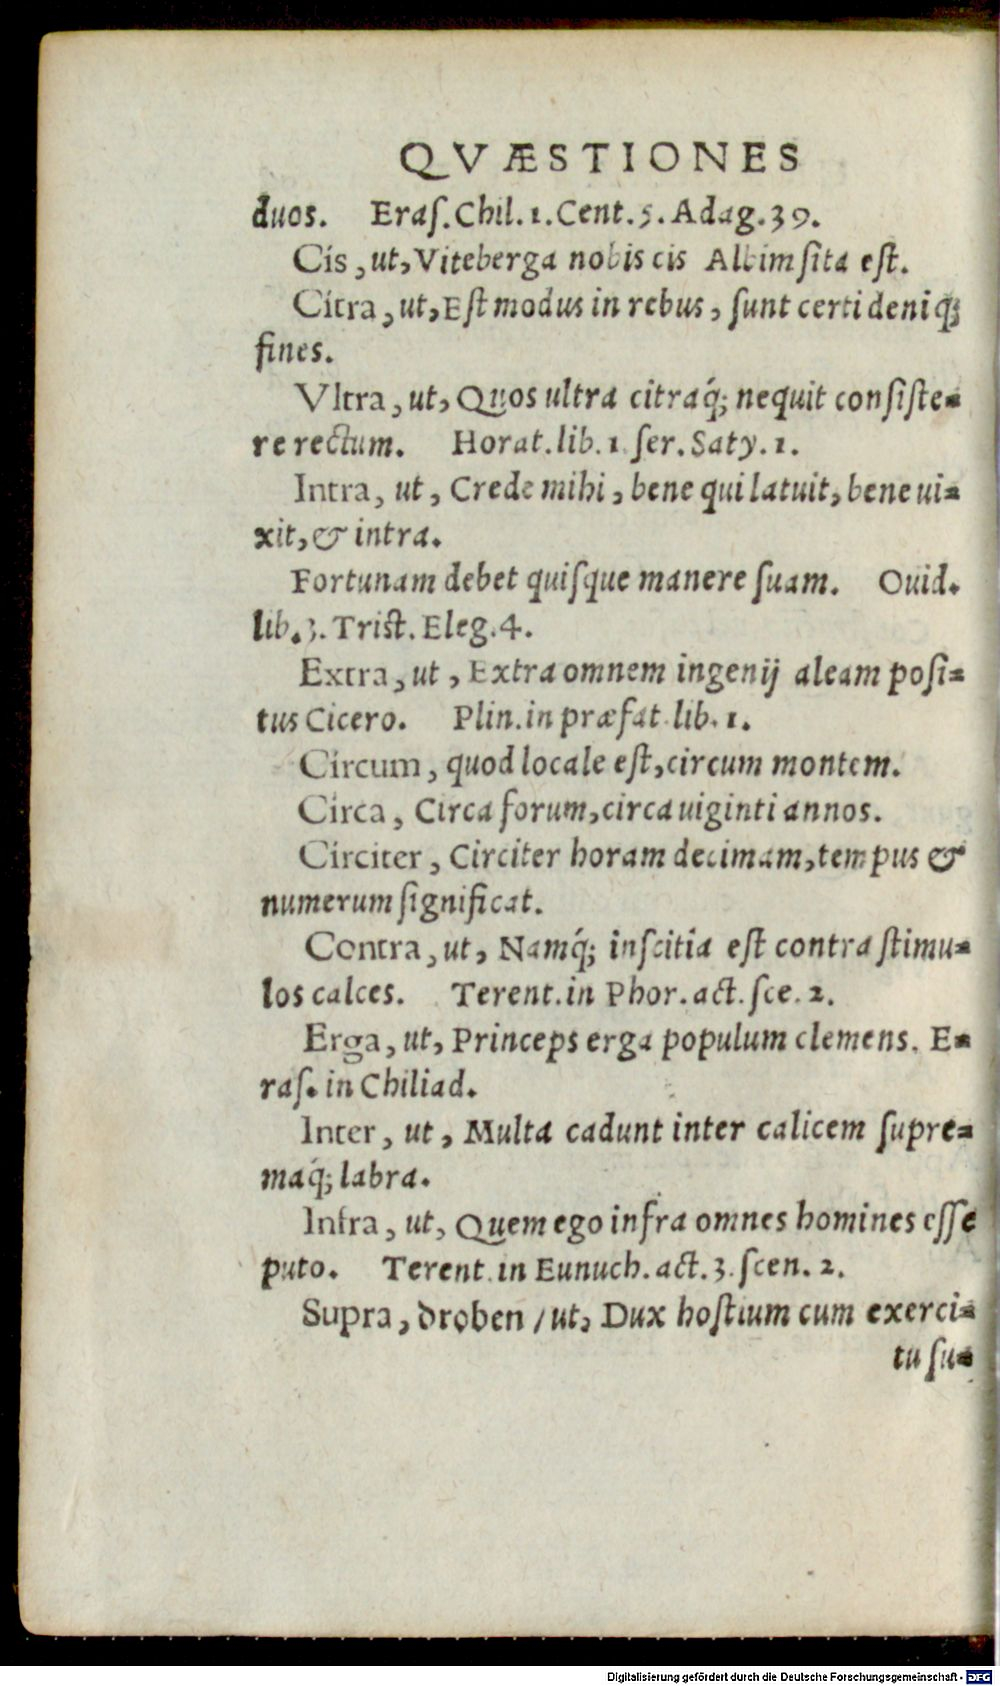 QVÆSTIONES
duos. Eraſ. Chil. 1. Cent. 5. Adag. 39.
Cis, ut, Viteberga nobis cis Albim ſita eſt.
Citra, ut, Eſt modus in rebus, ſunt certi deniq́;
fines.
Vltra, ut, Quos ultra citraq́; nequit conſiſte-
re rectum. Horat. lib. 1. ſer. Saty. 1.
Intra, ut, Crede mihi, bene qui latuit, bene ui-
xit, & intra.
Fortunam debet quiſque manere ſuam. Ouid.
lib. 3. Triſt. Eleg. 4.
Extra, ut, Extra omnem ingenij aleam poſi-
tus Cicero. Plin. in præfat. lib. 1.
Circum, quod locale eſt, circum montem.
Circa, Circa forum, circa uiginti annos.
Circiter, Circiter horam decimam, tempus &
numerum ſignificat.
Contra, ut, Namq́; inſcitia eſt contra ſtimu-
los calces. Terent. in Phor. act. ſce. 2.
Erga, ut, Princeps erga populum clemens. E-
raſ. in Chiliad.
Inter, ut, Multa cadunt inter calicem ſupre-
maq́; labra.
Infra, ut, Quem ego infra omnes homines eſſe
puto. Terent. in Eunuch. act. 3. ſcen. 2.
Supra, droben / ut, Dux hoſtium cum exerci-
tu ſu-
Digitalisierung gefördert durch die Deutsche Forschungsgemeinschaft - DFG